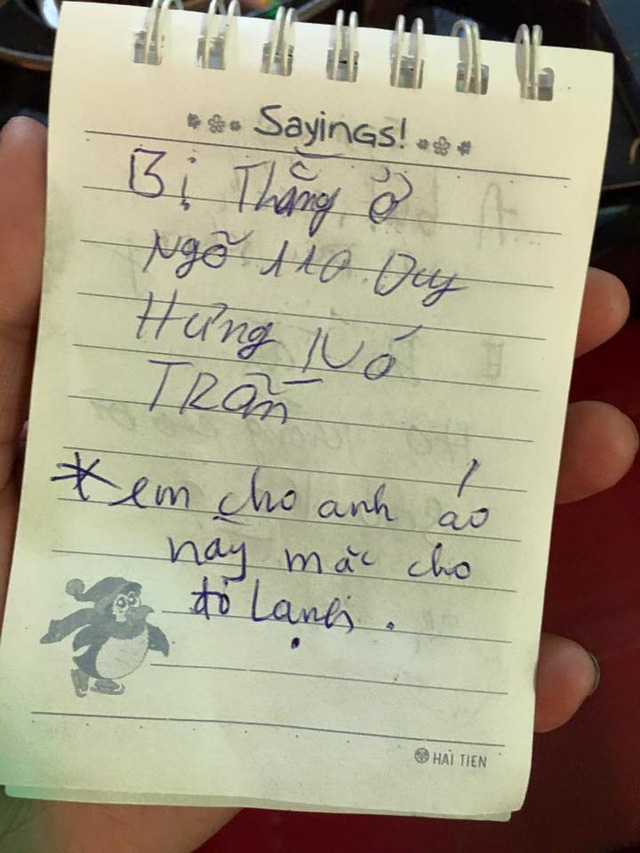 Sayings!
Bị Thằng ở
Ngõ 110 Duy
Hưng Nó
TRấn
*em cho anh áo
này mặc cho
đỡ Lạnh.
HAI TIEN